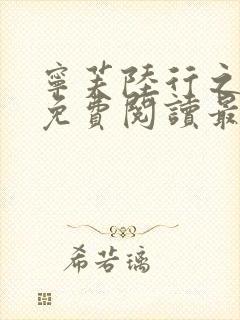 寧芙陸行之
免費閱讀最
希若璃